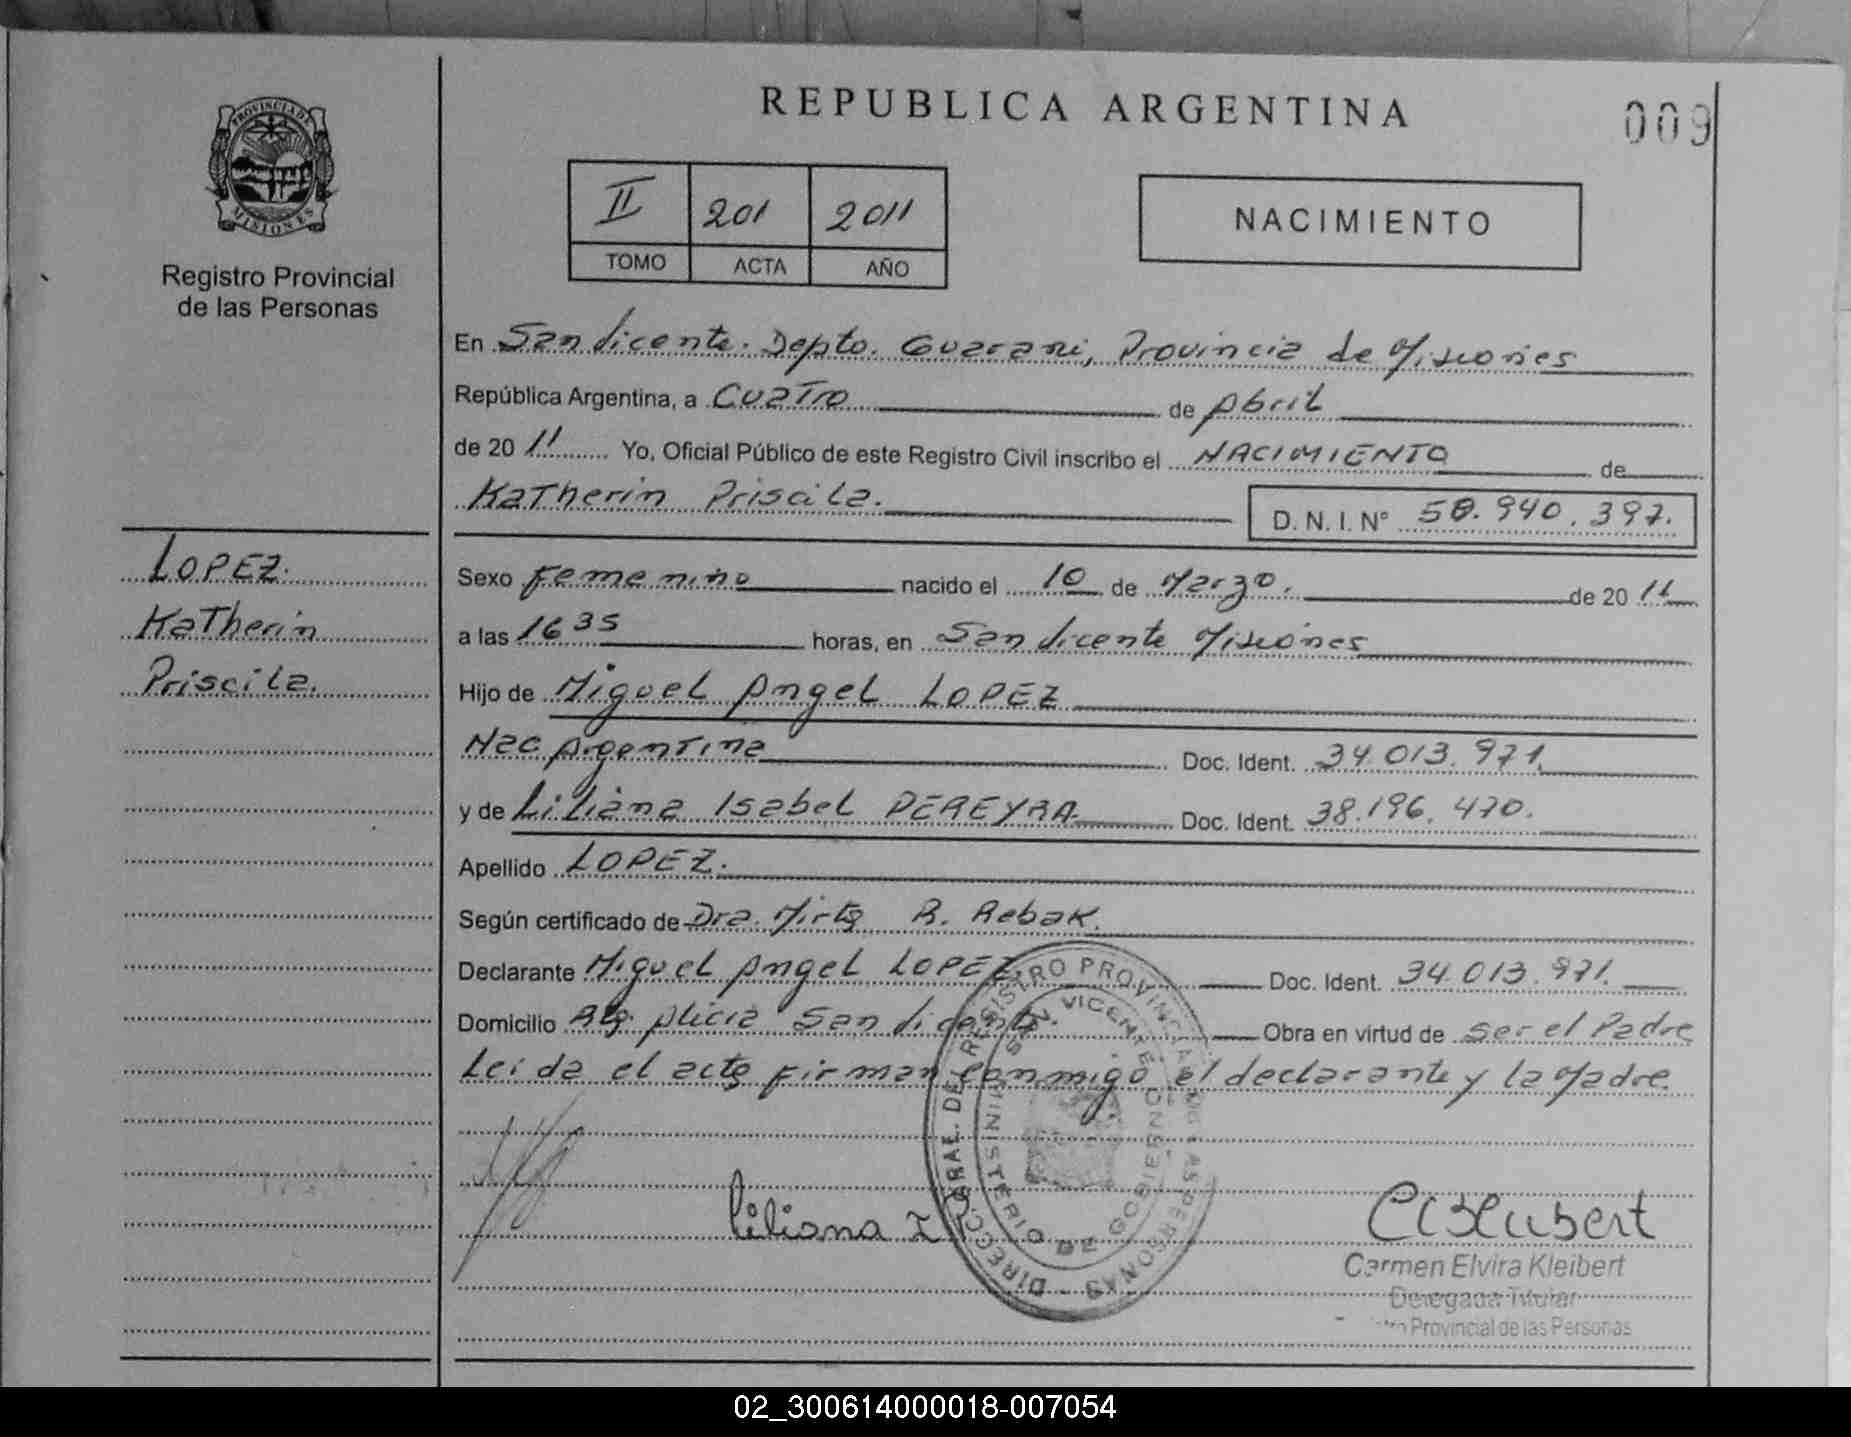 REPUBLICA ARGENTINA
009
PROVINCIA DE
MISIONES
Registro Provincial
de las Personas
II 201 2011
TOMO ACTA AÑO
NACIMIENTO
En San Vicente. Depto. Guarani, Provincia de Misiones
República Argentina, a Cuatro de Abril
de 20 11 Yo, Oficial Público de este Registro Civil inscribo el NACIMIENTO de
Katherin Priscila. D. N. I. N° 50.940.397.
LOPEZ.
Katherin
Priscila.
Sexo Femenino nacido el 10 de Marzo. de 20 11
a las 16 35 horas, en San Vicente Misiones
Hijo de Miguel Angel LOPEZ
Nac Argentina Doc. Ident. 34.013.971.
y de Liliana Isabel PEREYRA Doc. Ident. 38.196.470.
Apellido LOPEZ.
Según certificado de Dra. Mirta R. Rebak.
Declarante Miguel Angel LOPEZ Doc. Ident. 34.013.971.
Domicilio San Vicente. Obra en virtud de Ser el Padre
Leida el acta firman conmigo el declarante y la Madre.
DIRECC. GRAL. DEL REGISTRO PROVINCIAL DE LAS PERSONAS
SAN VICENTE
MINISTERIO DE GOBIERNO
Liliana I
Carmen Elvira Kleibert
Delegada Titular
Provincial de las Personas
02_300614000018-007054